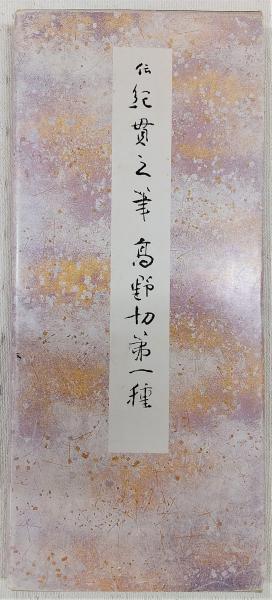 伝紀貫之筆高野切第一種